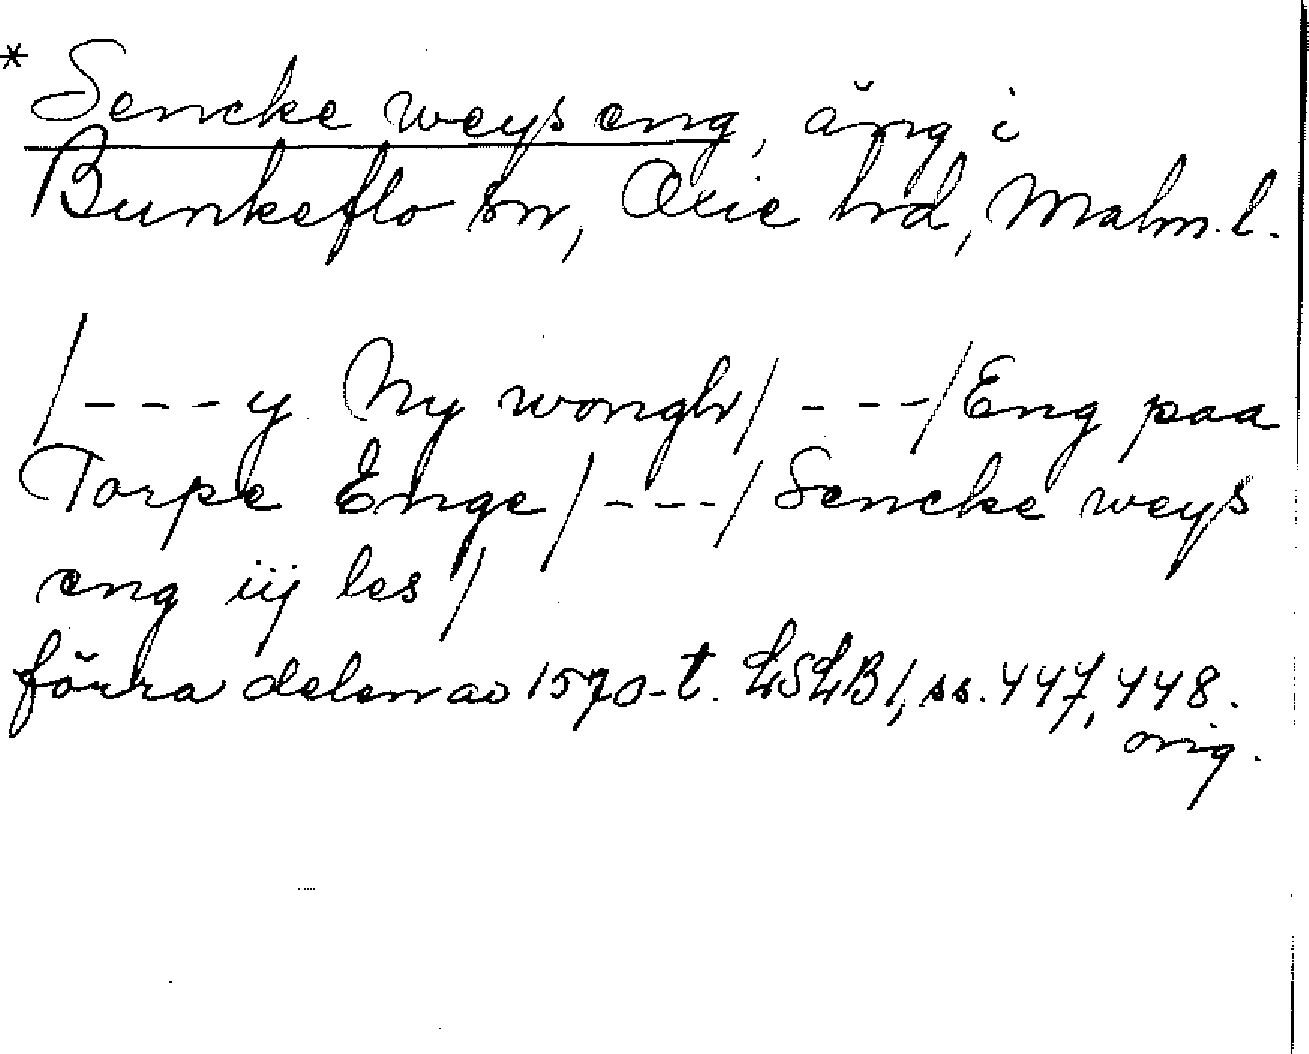 * Sencke weys eng, äng i
Bunkeflo sn, Oxie hd, Malm. l.
/---y Ny wongh/ ---/Eng paa
Torpe Enge/---/Sencke weys
eng iij les/
förra delen av 1570-t. LSLB 1, ss. 447, 448.
orig.